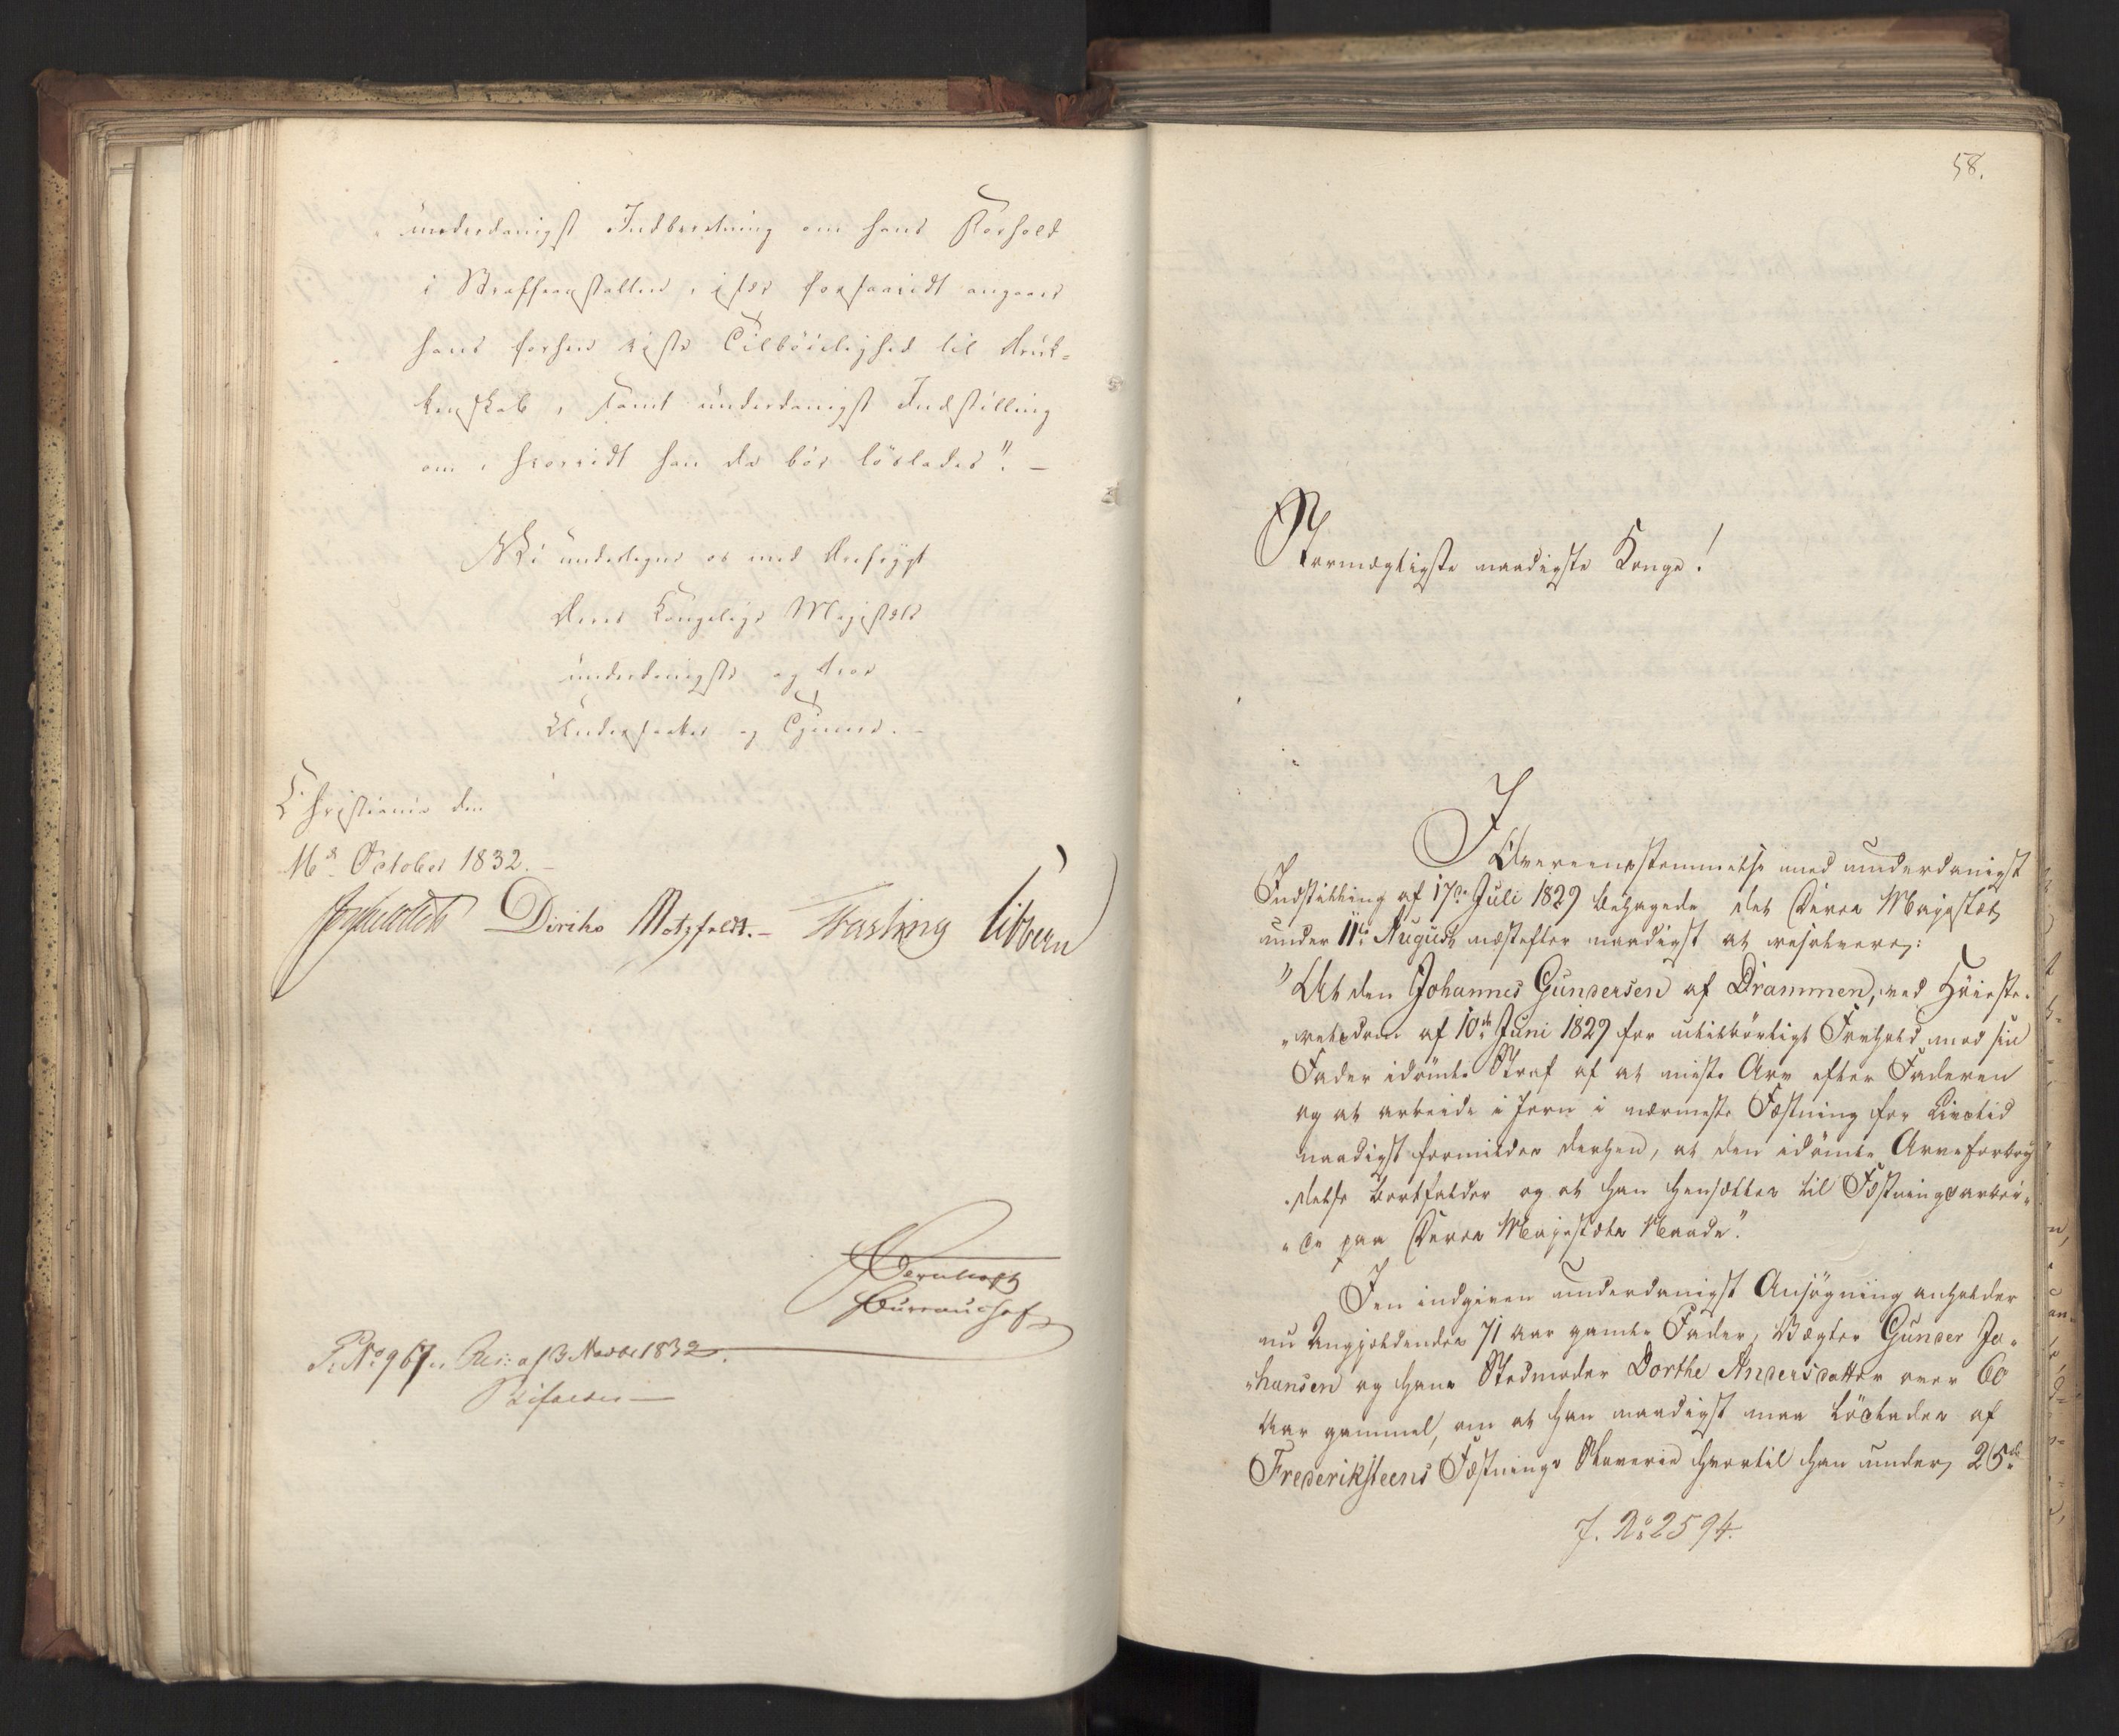 underdanigst Indberetning om hans Forhold
i Straffeanstalten, især forsaavidt angaaer
hans forhen viste Tilböielighed til Druk-
kenskab, samt underdanigst Indstilling
om, hvorvidt han da bör löslades". —
Vi undertegne os med Ærefrygt
Deres Kongelige Majestæts
underdanigste og troe
Undersaatter og Tjenere. —
Christiania den
16de October 1832. —
Diriks Motzfeldt. — Fasting Sibbern
Bureauchef
P. No 967. Res: af 3 Novbr 1832.
Bifaldes —
58.
Stormægtigste naadigste Konge!
I Overeensstemmelse med underdanigst
Indstilling af 17de Juli 1829 behagede det Deres Majestæt
under 11te August næstefter naadigst at resolvere:
"At den Johannes Gundersen af Drammen, ved Höieste-
"retsdom af 10de Juni 1829 for utilbörligt Forhold mod sin
Fader idömte Straf af at miste Arv efter Faderen
og at arbeide i Jern i nærmeste Fæstning for Livstid
naadigst formildes derhen, at den idömte Arveforbry-
"delse bortfalder og at han hensættes til Fæstningsarbei-
"de paa Deres Majestæts Naade".
I en indgiven underdanigst Ansögning anholder
nu Angjældendes 71 Aar gamle Fader, Vægter Gunder Jo-
"hansen og hans Stedmoder Dorthe Andersdatter over 60
Aar gammel, om at han naadigst maa löslades af
Frederiksteens Fæstnings Slaverie hvortil han under 25de
J. No 2594.